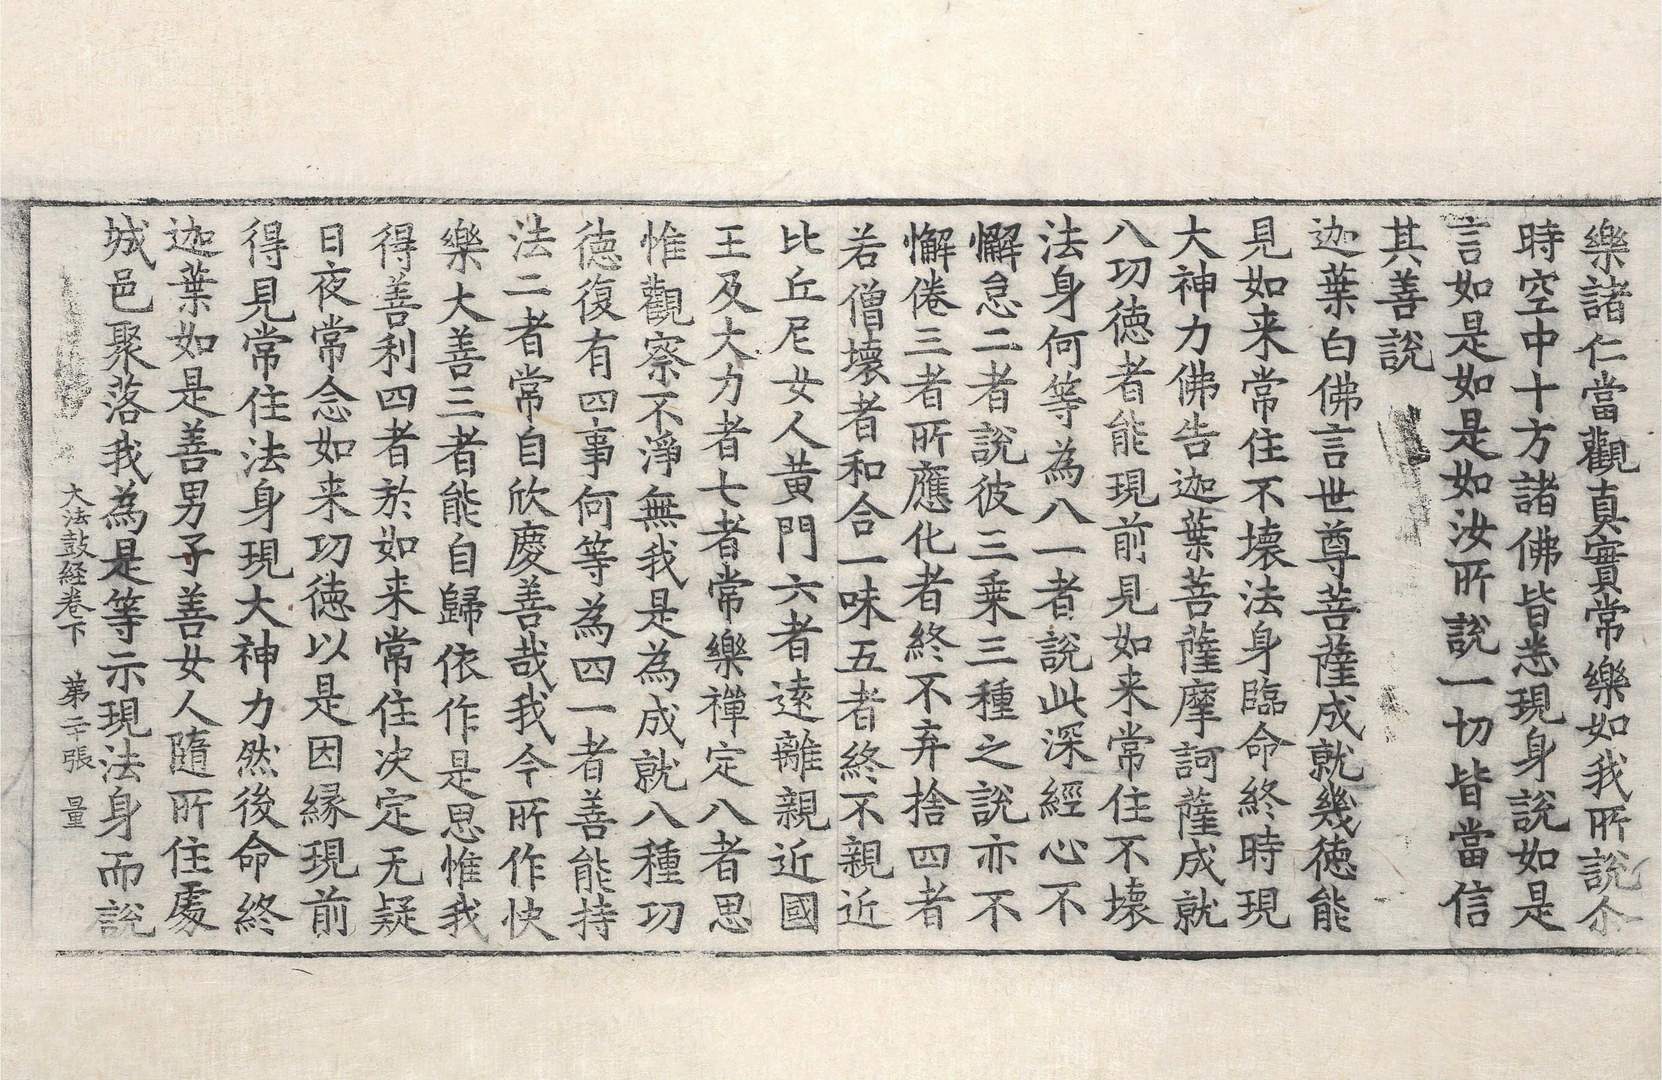 樂諸仁當觀真實常樂如我所說尒
時空中十方諸佛皆悉現身說如是
言如是如是如汝所說一切皆當信
其善說
迦葉白佛言世尊菩薩成就幾德能
見如来常住不壞法身臨命終時現
大神力佛告迦葉菩薩摩訶薩成就
八功德者能現前見如来常住不壞
法身何等為八一者說此深經心不
懈怠二者說彼三乗三種之說亦不
懈倦三者所應化者終不弃捨四者
若僧壞者和合一味五者終不親近
比丘尼女人黃門六者遠離親近國
王及大力者七者常樂禪定八者思
惟觀察不淨無我是為成就八種功
德復有四事何等為四一者善能持
法二者常自欣慶善哉我今所作快
樂大善三者能自歸依作是思惟我
得善利四者於如来常住決定无疑
日夜常念如来功德以是因縁現前
得見常住法身現大神力然後命終
迦葉如是善男子善女人隨所住處
城邑聚落我為是等示現法身而說
大法鼓経卷下 第二十張 量